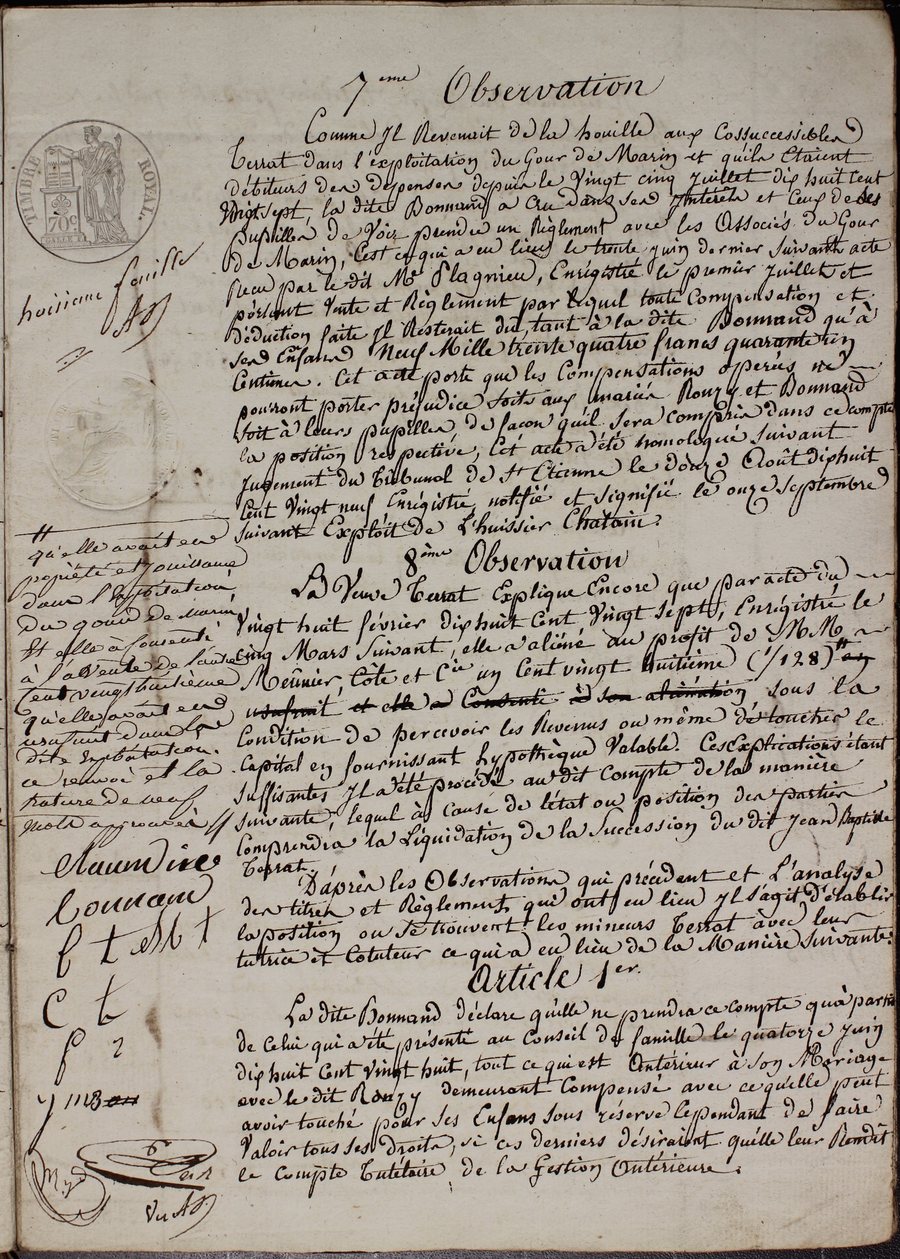 7eme Observation
TIMBRE ROYAL
70c
huitieme feuille
Comme Jl Revenait de la houille aux Cossuccessibles
Terrat dans l'exploitation du Gour de Marin et qu'ils Etaient
débiteurs des depenses depuis le Vingt cinq Juillet dix huit cent
Vingt sept, la dite Bonnand a Cru dans ses Jntérêts et Ceux de ses
pupilles de Voir prendre un Règlement avec les Associés du Gour
de Marin, C'est ce qui a eu lieu le trente juin dernier suivant acte
Recu par le dit Me Flagnieu, Enrégistré le premier Juillet et
portant Vente et Règlement par lequel toute Compensation et
Déduction faite Jl Resterait du, tant à la dite Bonnand qu'à
ses Enfans Neuf Mille trente quatre francs quarante
Centimes. Cet acte porte que les Compensations opérés ne
pourront porter préjudice soits aux mariés Rouzy et Bonnand
soit à leurs pupilles de facon qu'il sera compris dans ce compte
la position respective, Cét acte a été homologué suivant
Jugement du Tribunal de St Etienne le douze Août dix huit
Cent Vingt neuf Enrégistré, notifié et signifié le onze Septembre
suivant Exploit de L'huissier Chatain.
8ème Observation
La Veuve Terrat Explique Encore que par acte du
Vingt huit février dix huit Cent Vingt sept, Enrégistré le
Cinq Mars Suivant, elle a aliéné au profit de MM.
Meunier, Côte et Cie un Cent vingt huitième (1/128) # en
usufruit et elle a Consenti à son aliénation sous la
Condition de percevoir les Revenus ou même de toucher le
Capital en fournissant hypothèque Valable. Ces Explications étant
suffisantes Jl a été procédé au dit Compte de la manière
suivante, lequel à cause de l'état ou position des parties
Comprendra la Liquidation de la Succession du dit Jean Baptiste
Terrat.
D'après les Observations qui précédent et L'analyse
des titres et Règlements qui ont eu lieu Jl s'agit d'établir
la position ou se trouvent les mineurs Terrat avec leur
tutrice et Cotuteur ce qui a eu lieu de la Manière suivante:
Article 1er.
La dite Bonnand déclare qu'elle ne prendra ce compte qu'à partir
de Celui qui a été présenté au Conseil de famille le quatorze juin
dix huit Cent Vingt huit, tout ce qui est Antérieur à son Mariage
avec le dit Rouzy demeurant Compensé avec ce qu'elle peut
avoir touché pour ses Enfans sous réserve Cependant de faire
Valoir tous ses droits, si ces derniers désiraient qu'elle leur Rendit
le Compte Tutélaire de la Gestion Antérieure.
# qu'elle avait en
propriété et jouissance
dans l'Exploitation
du gour de marin,
Et elle à Consenti
à la Vente de l'autre
Cent vingt huitieme
qu'elle avait en
usufruit dans la
dite Exploitation.
ce renvoi et la
rature de neuf
mots approuvés #